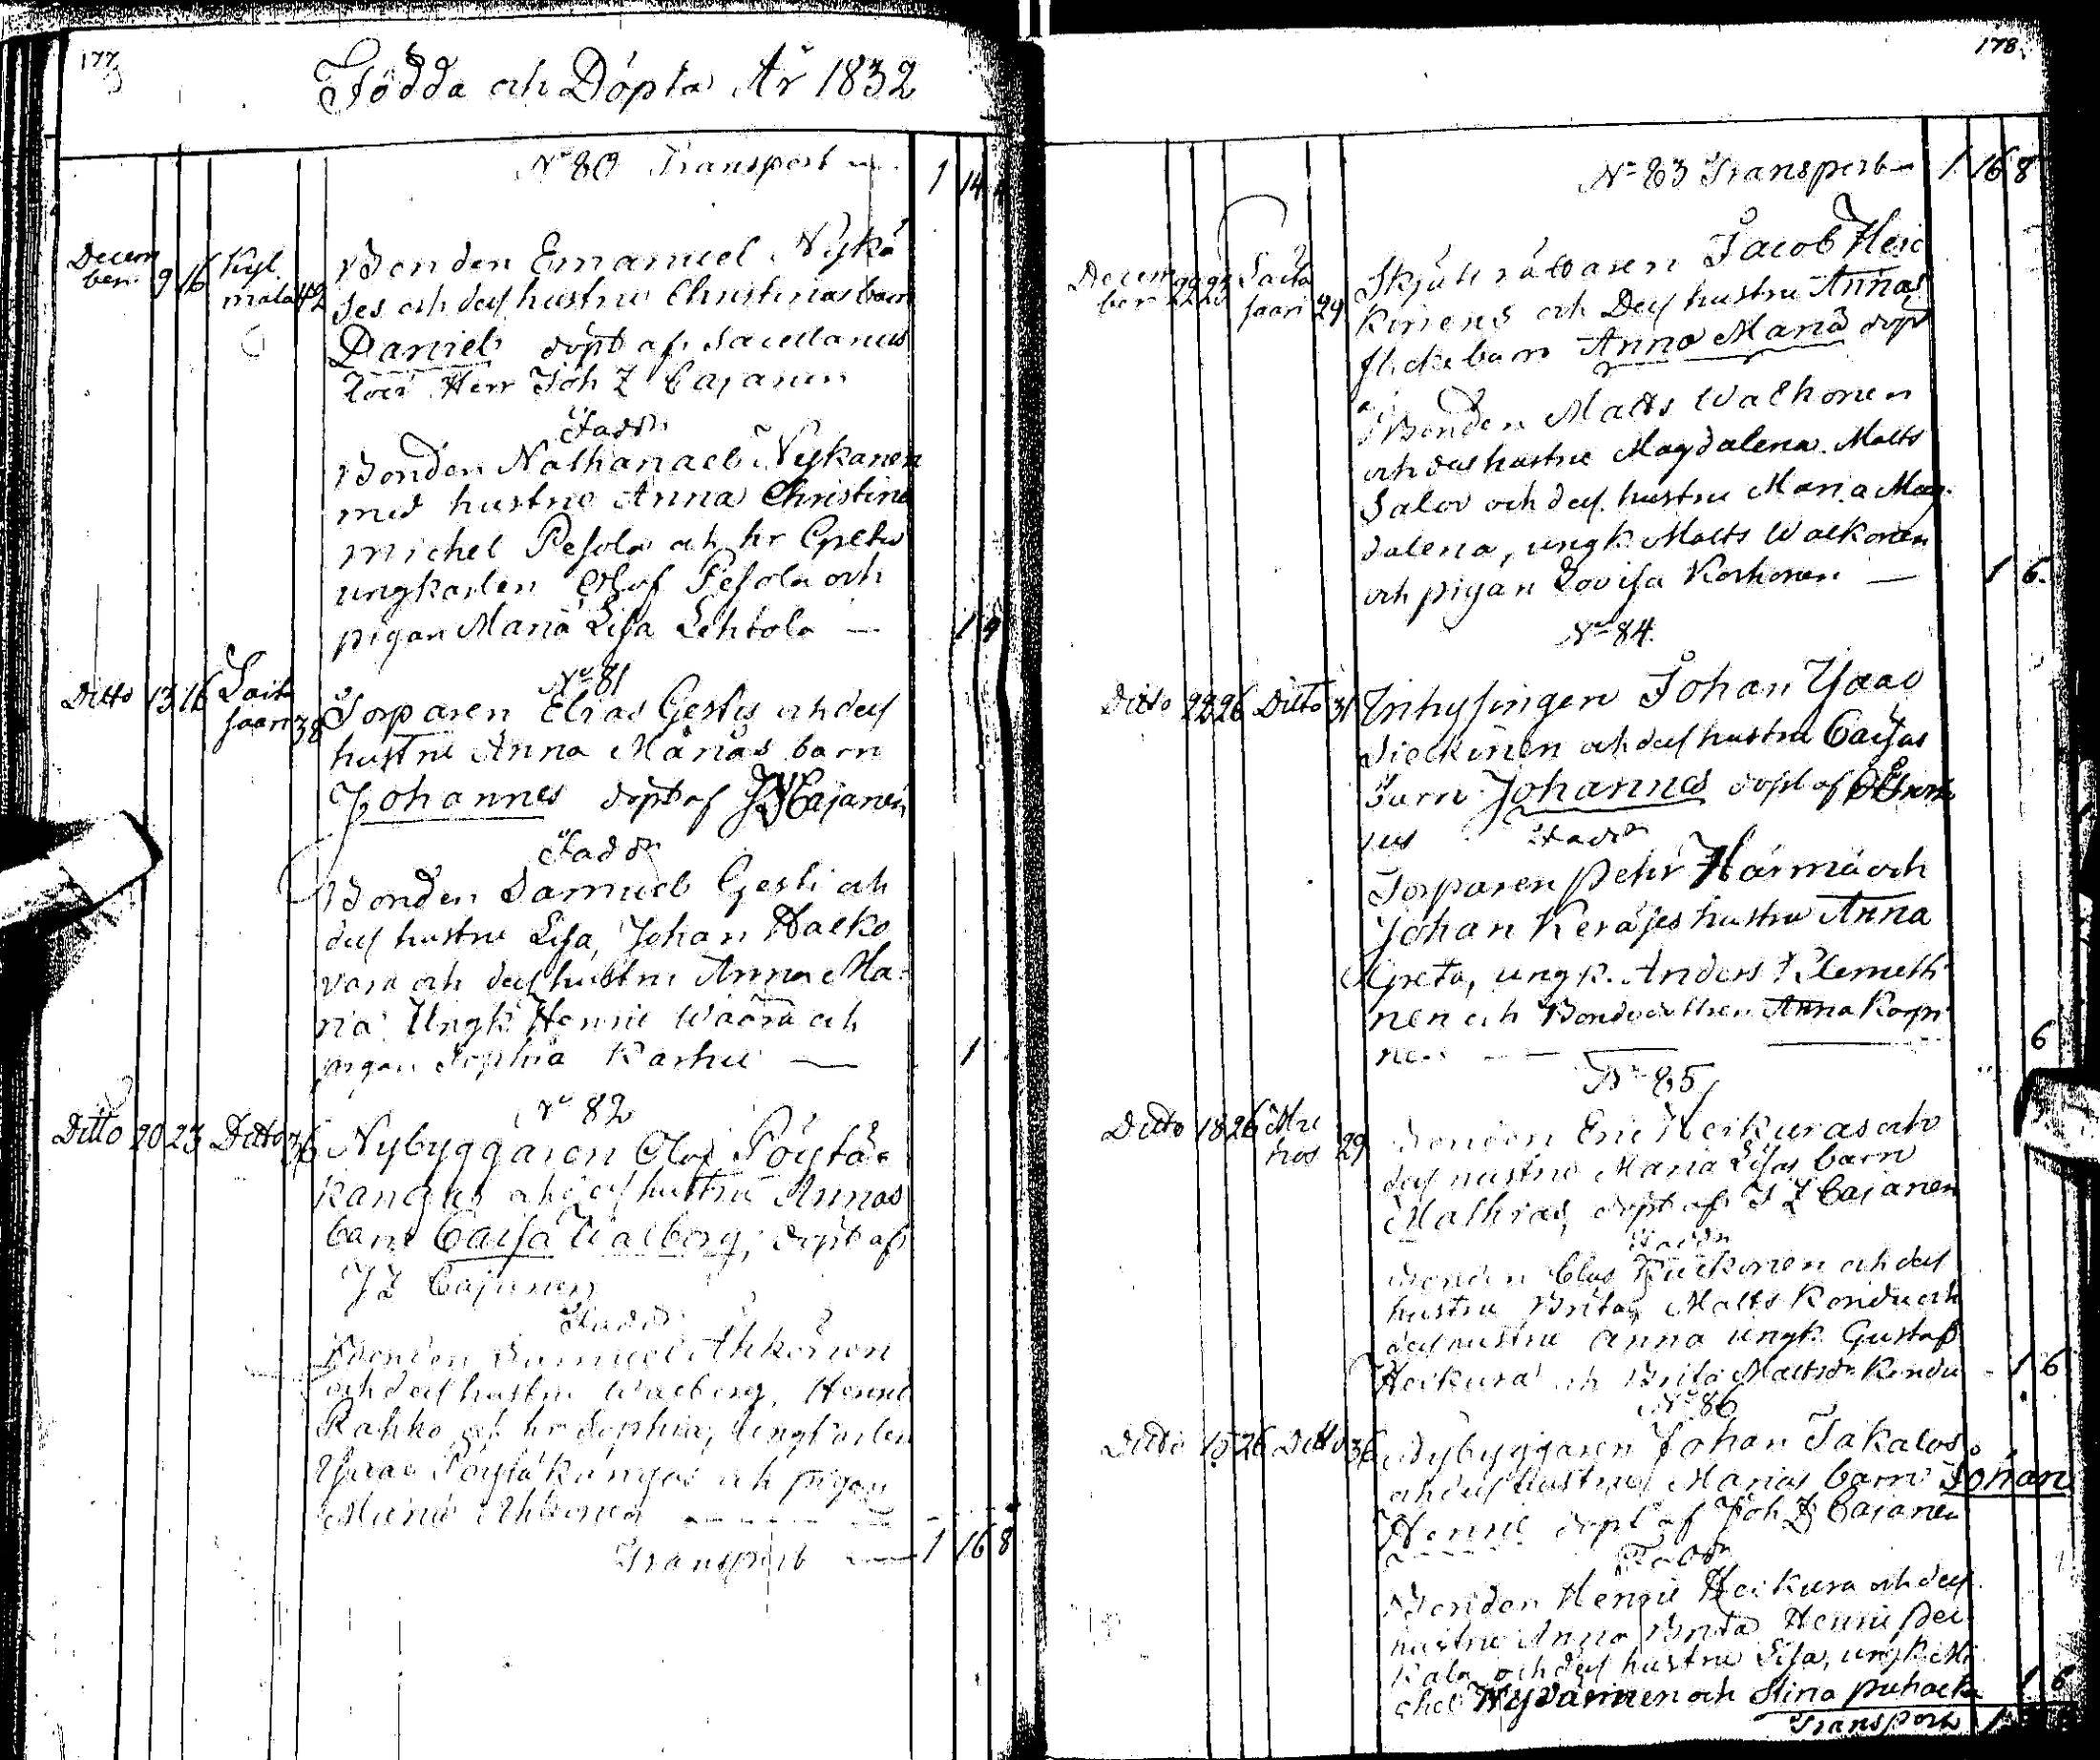 177
Födda och Döpta År 1832
No 80 Transport 1 14
Decem
ber 9 16 Kyl
mala 42
Bonden Emanuel Nykä
ses och dess hustrus Christinas barn
Daniel döpt af Sacellanus
Herr Joh Z Cajanen
Fadd:
Bonden Nathanael Nykänen
med hustru Anna Christina
Michel Pesola och hr Greta
ungkarlen Olof Pesola och
pigan Maria Lisa Lehtola — 1 4
No 81
Ditto 13 16 Saita
saari 38
Torparen Elias Gestis och dess
hustru Anna Marias barn
Johannes döpt af J Z Cajanen
Fadd:
Bonden Samuel Gesti och
dess hustru Lisa, Johan Halko
vara och dess hustru Anna Ma-
ria Ungk. Henric Waara och
pigan Sophia Karhu — 1
No 82
Ditto 20 23 Ditto 36
Nybyggaren Olof Pöytä-
kangas och dess hustru Annas
barn Caisa Walborg, döpt af
J Z Cajanen
Fadd:
Bonden Samuel Ahkonen
och dess hustru Walborg, Henric
Rahko och hr Sophia, Ungkarlen
Isaac Pöytäkangas och pigan
Ahkonen
Transport — 1 16 8
178.
No 83 Transport — 1 16 8
Decem
ber 22 25 Saita
saari 29
Skjutsrättaren Jacob Heic
kinens och Dess hustru Annas
flickebarn Anna Maria döpt
Bonden Matts Walkonen
och dess hustru Magdalena. Matts
Salov och dess hustru Maria Mag-
dalena, ungk. Matts Walkonen
och pigan Lovisa Korhonen — 1 6.
No 84.
Ditto 22 26 Ditto 31
Inhysingen Johan Isaac
Sieckinen och dess hustru Caisas
Barn Johannes döpt af
Fadd:
Torparen Pehr Härmä och
Johan Keräjes hustru Anna
Greta, ungk. Anders Klemetti
nen och Bondedottren Anna Korpi
nen — 6
No 85
Ditto 18 26 29
Bonden Eric Heikuras och
dess hustru Maria Lisas barn
Mathias, döpt af J Z Cajanen
Fadd:
Bonden Clas och dess
hustru Brita, Matts Kondu och
dess hustru Anna ungk. Gustaf
Heikura och Brita Mattsdr Kondu 1 6
No 86
Ditto 15 26 Ditto 36
Nybyggaren Johan Takalos
och dess hustrus Marias barn Johan
Henric döpt af Joh Z Cajanen
Fadd:
Bonden Henric Heikura och dess
hustru Anna Brita Henric Pei
kala och dess hustru Lisa, ungk Mi
chel Hyvärinen och Stina Puhacka 1 6
Transport 1